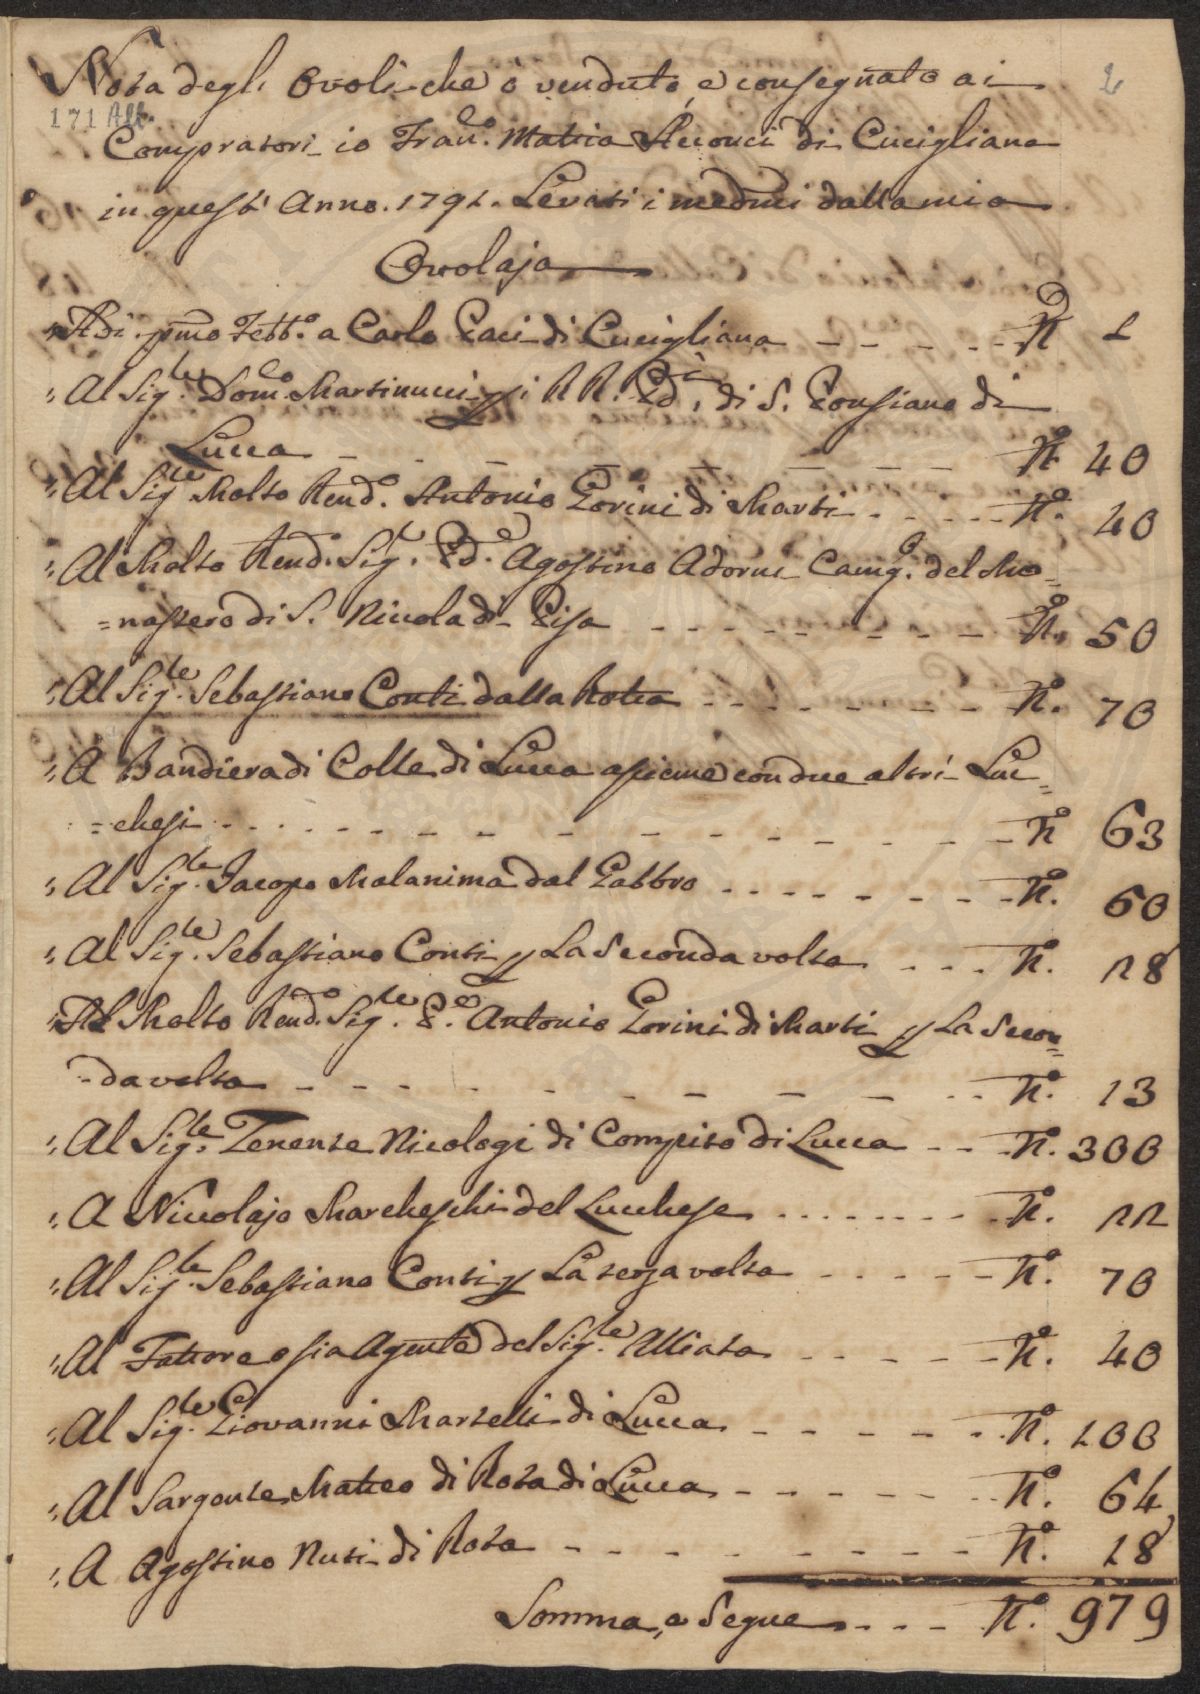 Nota degli Ovoli che ò venduto, e consegnato ai
171 All.
Compratori io Fran.co Mattia Stecouci di Cucigliana
in quest' Anno. 1791. Levati i medmi dalla mia
Ovolaja
" Adi. pmo Febb.o a Carlo Paci di Cucigliana - - - - - N.o 1
" Al Sig.le Dom.co Martinucci p i R R. Pd.i, di S. Ponsiano di
Lucca - - - - - - - N.o 40
" Al Sig.le Molto Rend.o Antonio Gorini di Marti - - - - - N.o 40
" Al Molto Rend. Sig.le Pd.e Agostino Adorni Camg.o del Mo=
=nastero di S. Nicola di Pisa - - - - - - - - - N.o 50
" Al Sig.le Sebastiano Conti dalla Rotta - - - - - - - N.o 70
" A Bandiera di Colle di Lucca assieme con due altri Luc=
=chesi - - - - - - - - - - - - N.o 63
" Al Sig.le Jacopo Malanima dal Gabbro - - - - - - - - N.o 60
" Al Sig.le Sebastiano Conti p La Seconda volta - - - N.o 28
" Al Molto Rend.o Sig.le P.e Antonio Gorini di Marti p La Secon=
=da volta - - - - - - - - - - - N.o 13
" Al Sig.le Tenente Nicologi di Compito di Lucca - - - N.o 300
" A Niccolajo Marcheschi del Lucchese - - - - - - - - N.o 22
" Al Sig.le Sebastiano Conti p La terza volta - - - - - N.o 70
" Al Fattore o sia Agente del Sig.le Alliata - - - - - N.o 40
" Al Sig.le Giovanni Martelli di Lucca - - - - - - N.o 100
" Al Sargente Matteo di Rota di Lucca - - - - - - - N.o 64
" A Agostino Nuti di Rota - - - - - - - - - N.o 18
Somma, e Segue - - - N.o 979